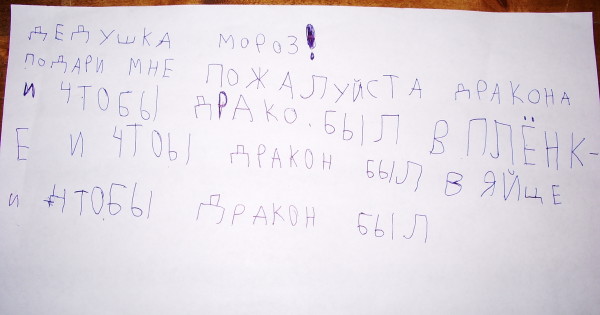 ДЕДУШКА МОРОЗ!
ПОДАРИ МНЕ ПОЖАЛУЙСТА ДРАКОНА
И ЧТОБЫ ДРАКО. БЫЛ В ПЛЁНК-
Е И ЧТОЫ ДРАКОН БЫЛ В ЯЙЦЕ
И ЧТОБЫ ДРАКОН БЫЛ